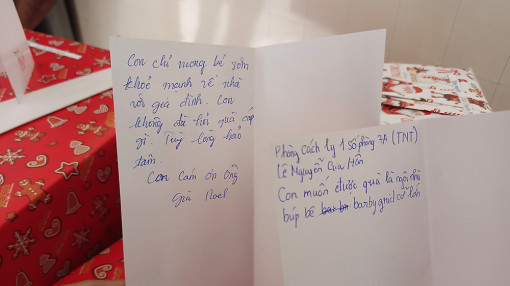 Con chỉ mong bé sớm
khoẻ mạnh về nhà
với gia đình. Con
không đòi hỏi quà cáp
gì. Tuỳ lòng hảo
tâm.
Con cám ơn ông
Già Noel
Phòng Cách ly 1 Số phòng 7A (TNT)
Lê Nguyễn Cựu Hân
Con muốn được quà là ngôi nhà
búp bê barby gricl cỡ lớn